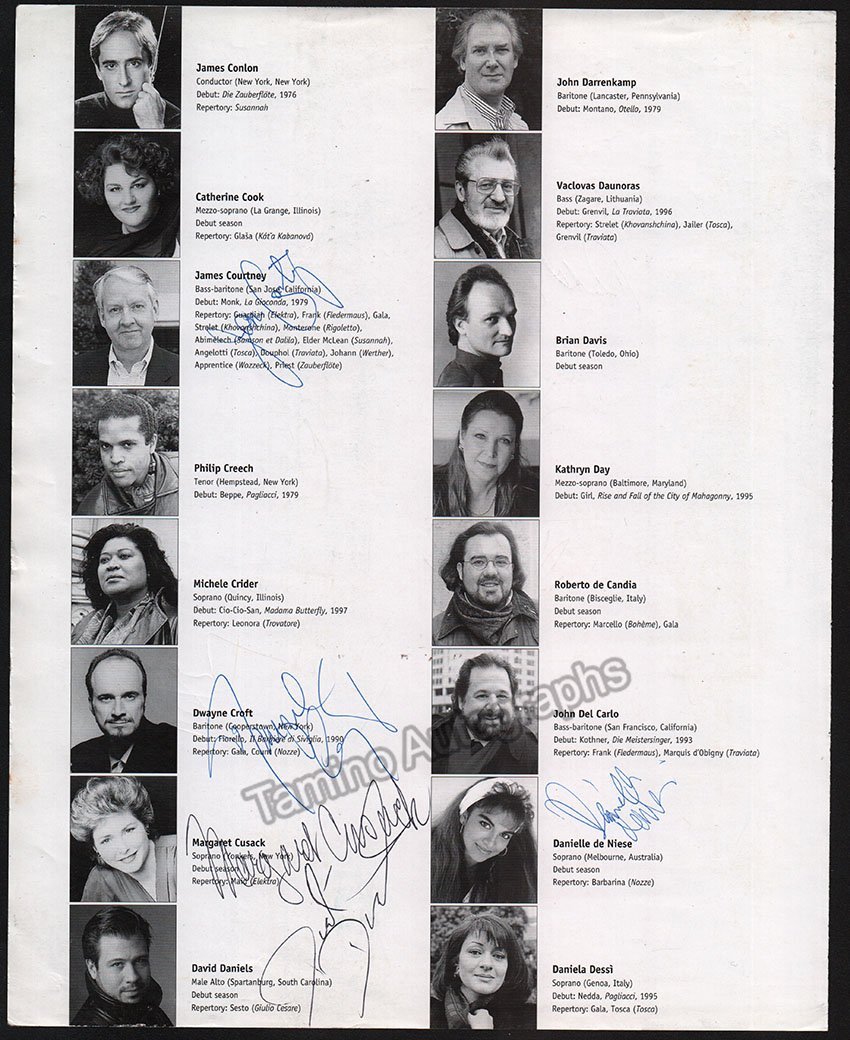 James Conlon
Conductor (New York, New York)
Debut: Die Zauberflöte, 1976
Repertory: Susannah
Catherine Cook
Mezzo-soprano (La Grange, Illinois)
Debut season
Repertory: Glaša (Kát'a Kabanová)
James Courtney
Bass-baritone (San José, California)
Debut: Monk, La Gioconda, 1979
Repertory: Guardian (Elektra), Frank (Fledermaus), Gala,
Strelet (Khovanshchina), Monterone (Rigoletto),
Abimélech (Samson et Dalila), Elder McLean (Susannah),
Angelotti (Tosca), Douphol (Traviata), Johann (Werther),
Apprentice (Wozzeck), Priest (Zauberflöte)
Philip Creech
Tenor (Hempstead, New York)
Debut: Beppe, Pagliacci, 1979
Michele Crider
Soprano (Quincy, Illinois)
Debut: Cio-Cio-San, Madama Butterfly, 1997
Repertory: Leonora (Trovatore)
Dwayne Croft
Baritone (Cooperstown, New York)
Debut: Fiorello, Il Barbiere di Siviglia, 1990
Repertory: Gala, Count (Nozze)
Margaret Cusack
Soprano (Yonkers, New York)
Debut season
Repertory: Maid (Elektra)
Margaret Cusack
David Daniels
Male Alto (Spartanburg, South Carolina)
Debut season
Repertory: Sesto (Giulio Cesare)
John Darrenkamp
Baritone (Lancaster, Pennsylvania)
Debut: Montano, Otello, 1979
Vaclovas Daunoras
Bass (Zagare, Lithuania)
Debut: Grenvil, La Traviata, 1996
Repertory: Strelet (Khovanshchina), Jailer (Tosca),
Grenvil (Traviata)
Brian Davis
Baritone (Toledo, Ohio)
Debut season
Kathryn Day
Mezzo-soprano (Baltimore, Maryland)
Debut: Girl, Rise and Fall of the City of Mahagonny, 1995
Roberto de Candia
Baritone (Bisceglie, Italy)
Debut season
Repertory: Marcello (Bohème), Gala
John Del Carlo
Bass-baritone (San Francisco, California)
Debut: Kothner, Die Meistersinger, 1993
Repertory: Frank (Fledermaus), Marquis d'Obigny (Traviata)
Danielle de Niese
Soprano (Melbourne, Australia)
Debut season
Repertory: Barbarina (Nozze)
Daniela Dessì
Soprano (Genoa, Italy)
Debut: Nedda, Pagliacci, 1995
Repertory: Gala, Tosca (Tosca)
Tamino Autographs